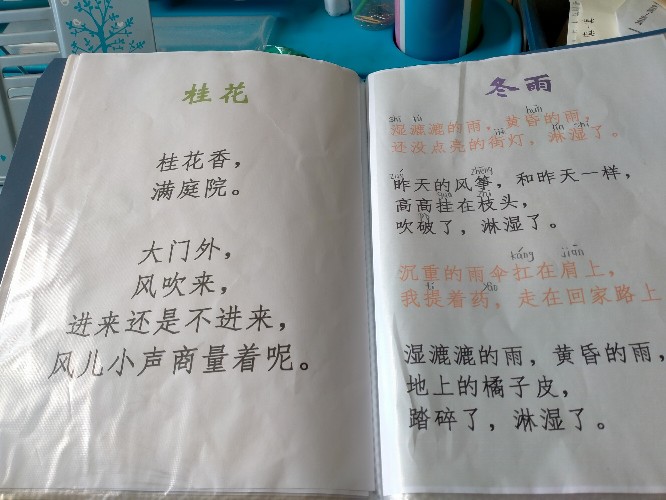 桂花
桂花香，
满庭院。
大门外，
风吹来，
进来还是不进来，
风儿小声商量着呢。
冬雨
湿漉漉的雨，黄昏的雨，
还没点亮的街灯，淋湿了。
昨天的风筝，和昨天一样，
高高挂在枝头，
吹破了，淋湿了。
káng jiān
沉重的雨伞扛在肩上，
我提着药，走在回家路上
湿漉漉的雨，黄昏的雨，
地上的橘子皮，
踏碎了，淋湿了。